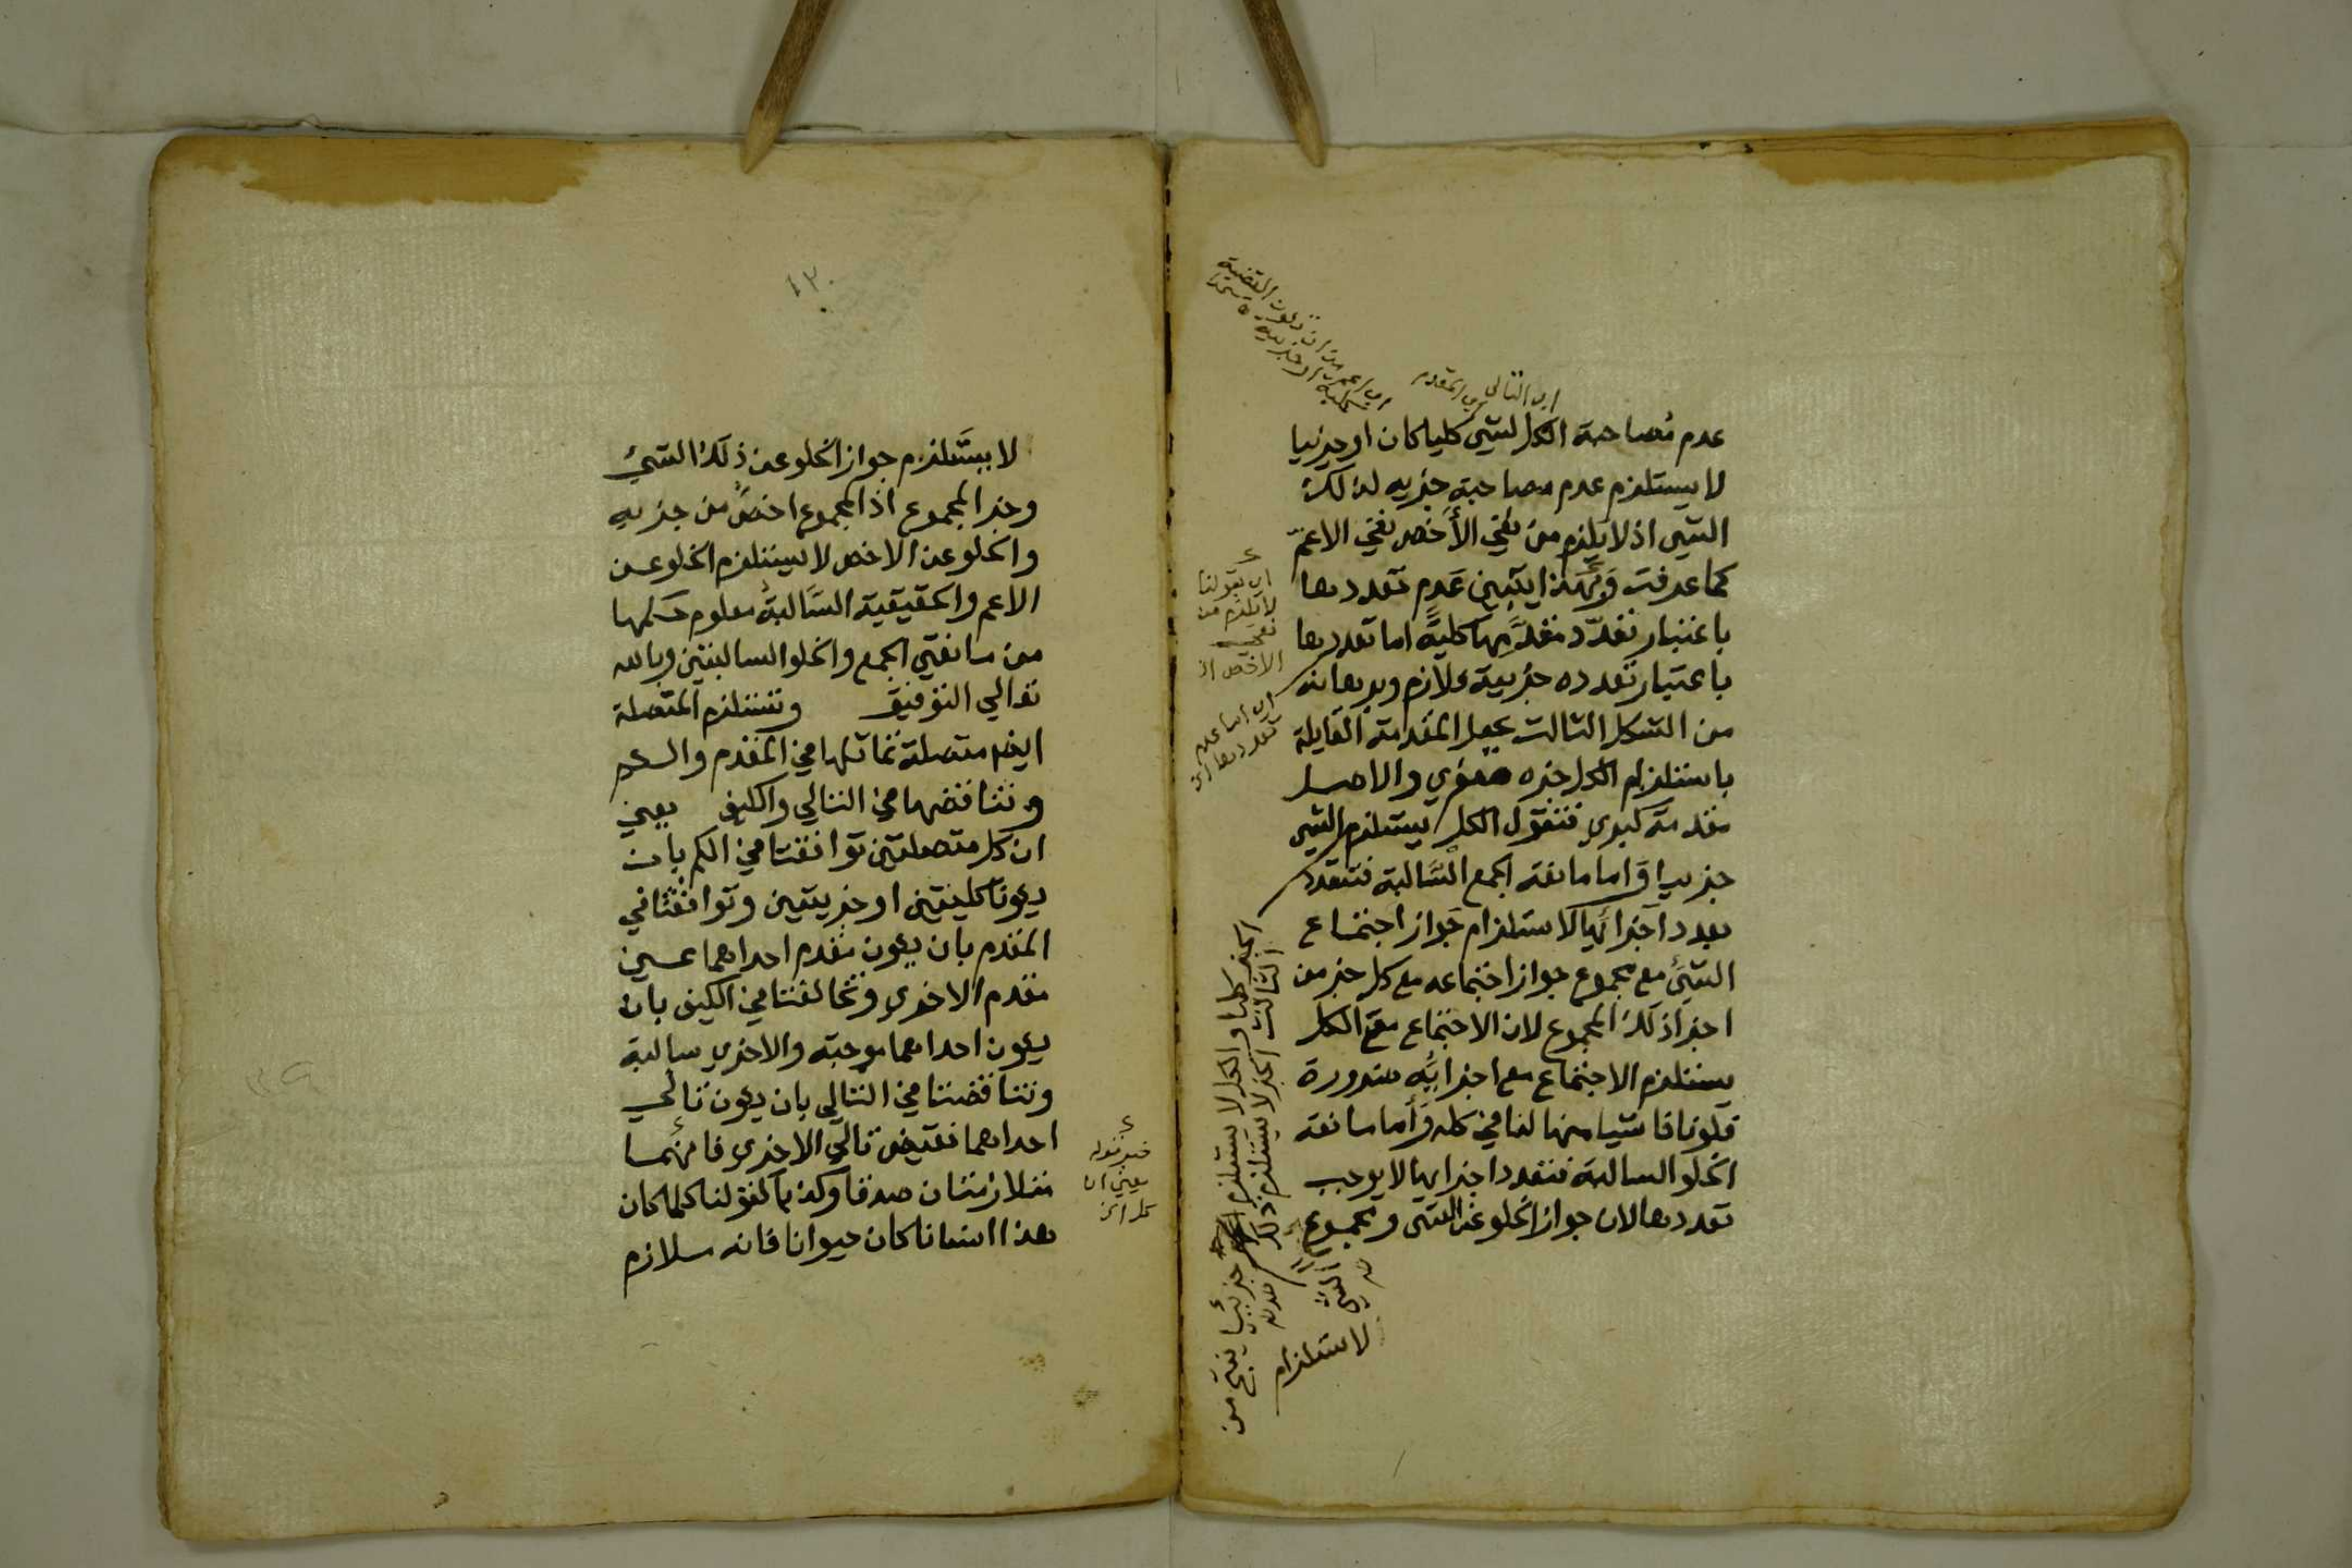 عدم مصاحبة الكل لشي كليا كان او جزئيا
لا يستلزم عدم مصاحبة جزيه لذلك
الشي اذ لا يلزم من نفي الأخص نفي الاعمّ
كما عرفت وَبهذا يتبين عَدم تعددها
باعتبار تعدّد مقدَّمها كليةً اما تعددها
باعتبار تعدده جزيية فلازم وبرهانه
من الشكل الثالث بجعل المقدمة القايلة
باستلزام الكل جزءه صغري والاصل
مقدمة كبري فنقول الكل يستلزم الشي
جزييا وَاما مانعة الجمع السَّالبة فتتعدد
بعدد اجزائها لاستلزام جَواز اجتماع
الشئ مع مجموع جواز اجتماعه مع كل جز من
اجزا ذلك المجموع لان الاجتماع مع الكل
يستلزم الاجتماع مع اجزايه ضرورة
فلو نافا شيا منها لنافي كله وَأما مانعة
الخلو السالبة فتعدد اجزايها لا يوجب
تعددها لان جواز الخلو عن الشي ومجموع
اي التالي
اي المقدم
اي اعم من ان تكون القضية
كلية او جزيية
اي بقولنا
لا يلزم من
نفي
الاخص الخ
اي اما عدم
تعددها الخ
لاستلزام
لا يستَلزم جواز الخلو عن ذلك الشيئ
وجز المجموع اذ المجموع اخصُّ من جزيه
والخلو عن الاخص لا يستلزم الخلو عن
الاعم والحقيقية السَّالبة معلوم حكمها
من مانعتي الجمع والخلو السالبتين وبالله
تعالي التوفيق وتستلزم المتصلة
ايضا متصلة تماثلها في المقدم والكم
وتناقضها في التالي والكيف يعني
ان كل متصلتين توافقتا في الكم بان
يكونا كليتين او جزيتين وتوافقتا في
المقدم بان يكون مقدم احداهما عين
مقدم الاخري وتخالفتا في الكيف بان
يكون احداهما موجبة والاخري سالبة
وتناقضتا في التالي بان يكون تالي
احداهما نقيض تالي الاخري فانهما
متلازمتان صدقا وكذبا كقولنا كلما كان
هذا انسانا كان حيوانا فانه ملازم
يعني ان
كل الخ
١٣٠